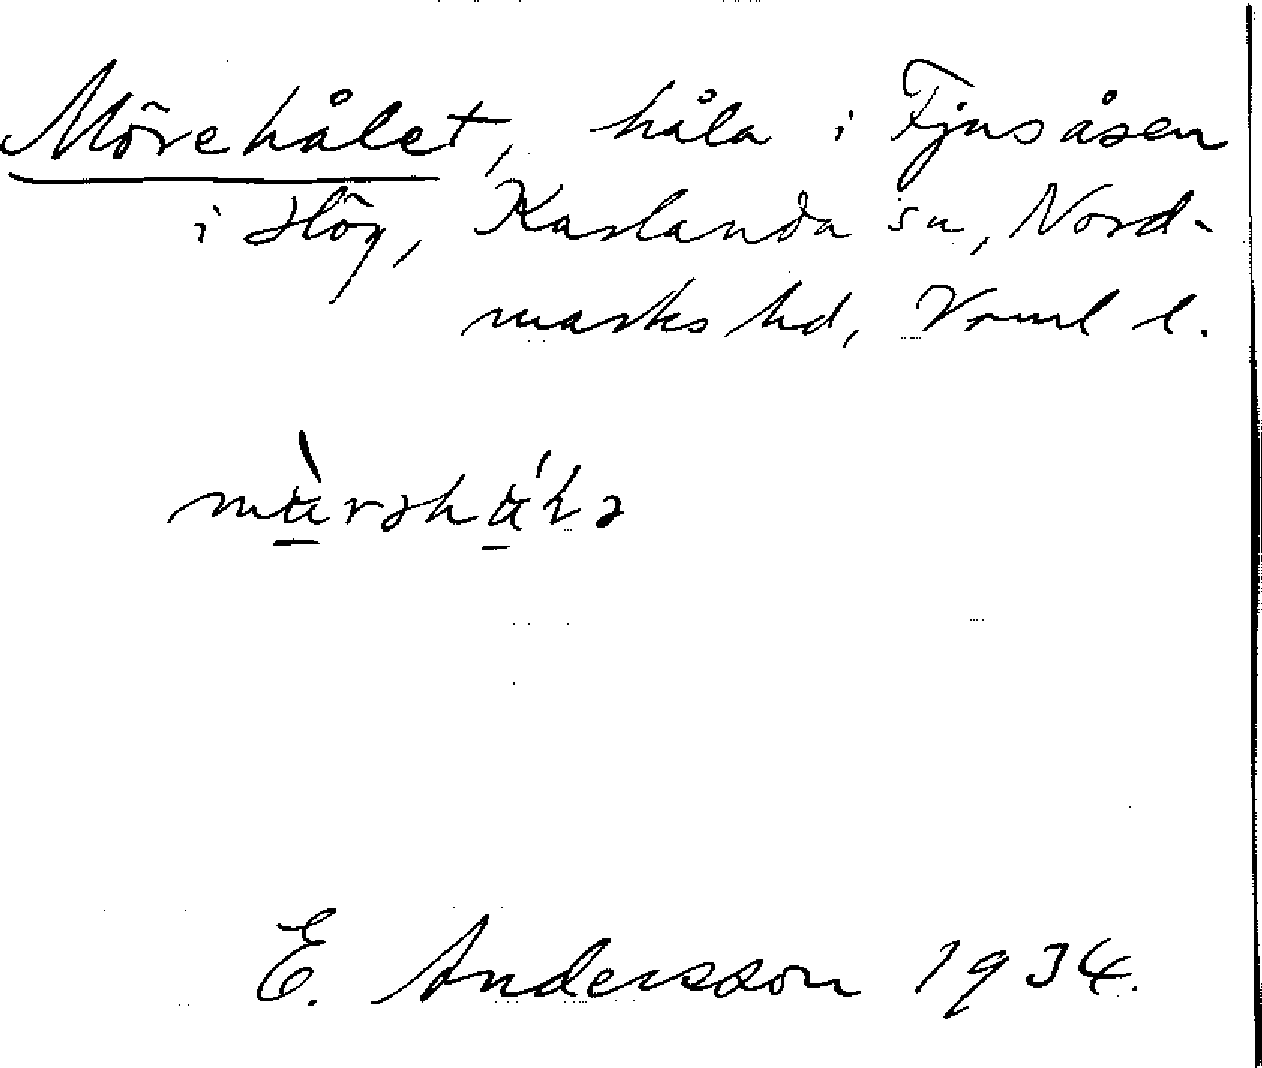 Mörehålet, håla i Fjusåsen
i Hög, Karlanda sn, Nord-
marks hd, Vrml l.
E. Andersson 1934.